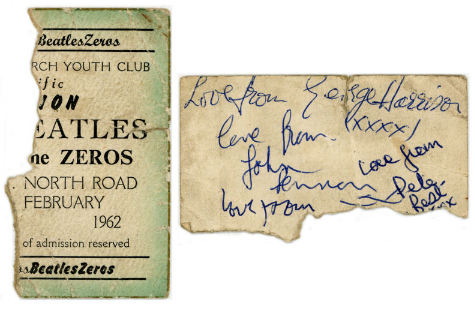 BeatlesZeros
RCH YOUTH CLUB
ific
ION
EATLES
ne ZEROS
NORTH ROAD
FEBRUARY
1962
of admission reserved
sBeatlesZeros
Love from George Harrison
(xxxx)
love from
John
Lennon
love from
Pete
Best
xx
love from